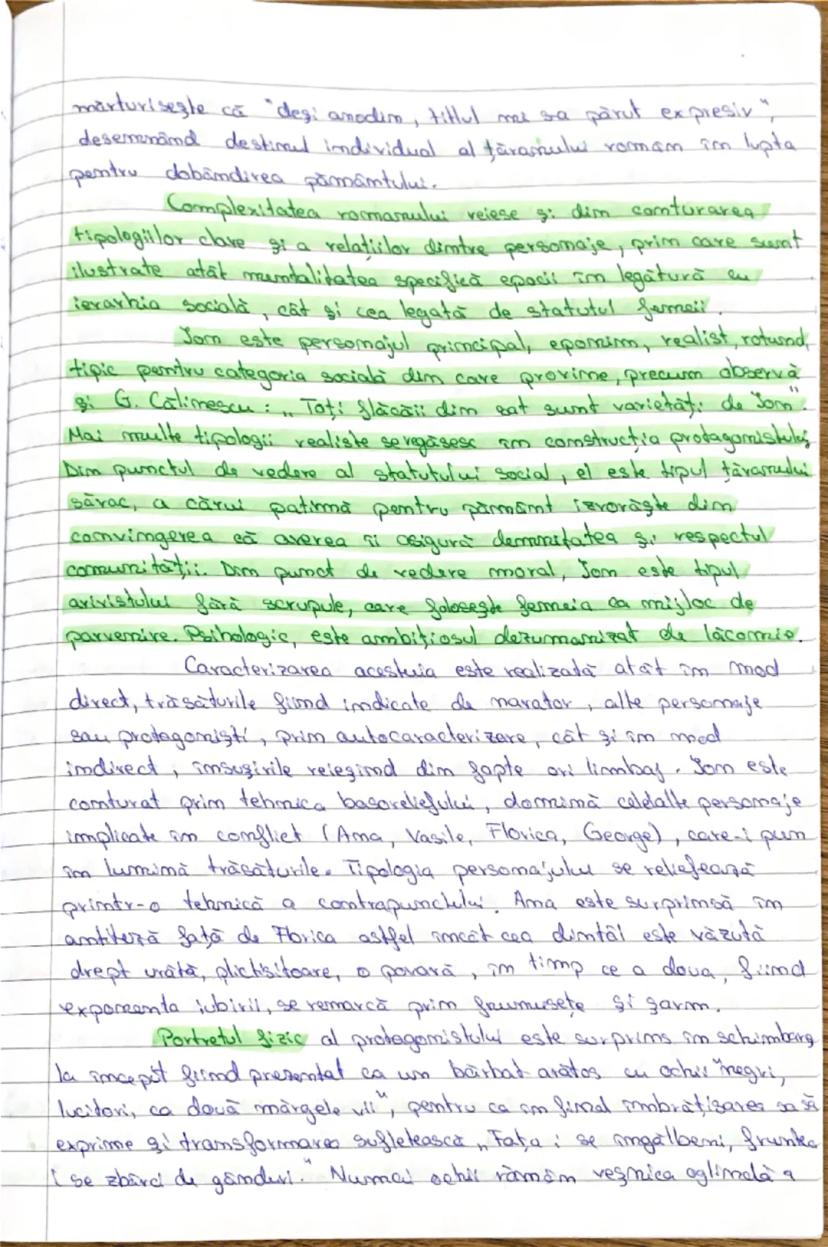 mărturisește că "deși anodin, titlul mi s-a părut expresiv",
desemnând destinul individual al țăranului român în lupta
pentru dobândirea pământului.
Complexitatea romanului reiese și din conturarea
tipologiilor clare și a relațiilor dintre personaje, prin care sunt
ilustrate atât mentalitatea specifică epocii în legătură cu
ierarhia socială, cât și cea legată de statutul femeii.
Ion este personajul principal, eponim, realist, rotund,
tipic pentru categoria socială din care provine, precum observă
și G. Călinescu: „Toți flăcăii din sat sunt varietăți de Ion".
Mai multe tipologii realiste se regăsesc în construcția protagonistului.
Din punctul de vedere al statutului social, el este tipul țăranului
sărac, a cărui patimă pentru pământ izvorăște din
convingerea că averea îi asigură demnitatea și respectul
comunității. Din punct de vedere moral, Ion este tipul
arivistului fără scrupule, care folosește femeia ca mijloc de
parvenire. Psihologic, este ambițiosul dezumanizat de lăcomie.
Caracterizarea acestuia este realizată atât în mod
direct, trăsăturile fiind indicate de narator, alte personaje
sau protagoniști, prin autocaracterizare, cât și în mod
indirect, însușirile reieșind din fapte ori limbaj. Ion este
conturat prin tehnica basoreliefului, domină celelalte personaje
implicate în conflict (Ana, Vasile, Florica, George), care-i pun
în lumină trăsăturile. Tipologia personajului se reliefează
printr-o tehnică a contrapunctului. Ana este surprinsă în
antiteză față de Florica astfel încât cea dintâi este văzută
drept urâtă, plictisitoare, o povară, în timp ce a doua, fiind
exponenta iubirii, se remarcă prin frumusețe și șarm.
Portretul fizic al protagonistului este surprins în schimbare
la început fiind prezentat ca un bărbat arătos cu ochii "negri,
lucitori, ca două mărgele vii", pentru ca în final îmbrătișarea sa să
exprime și transformarea sufletească „Fața i se îngălbeni, fruntea
i se zbârci de gânduri." Numai ochii rămân veșnica oglindă a